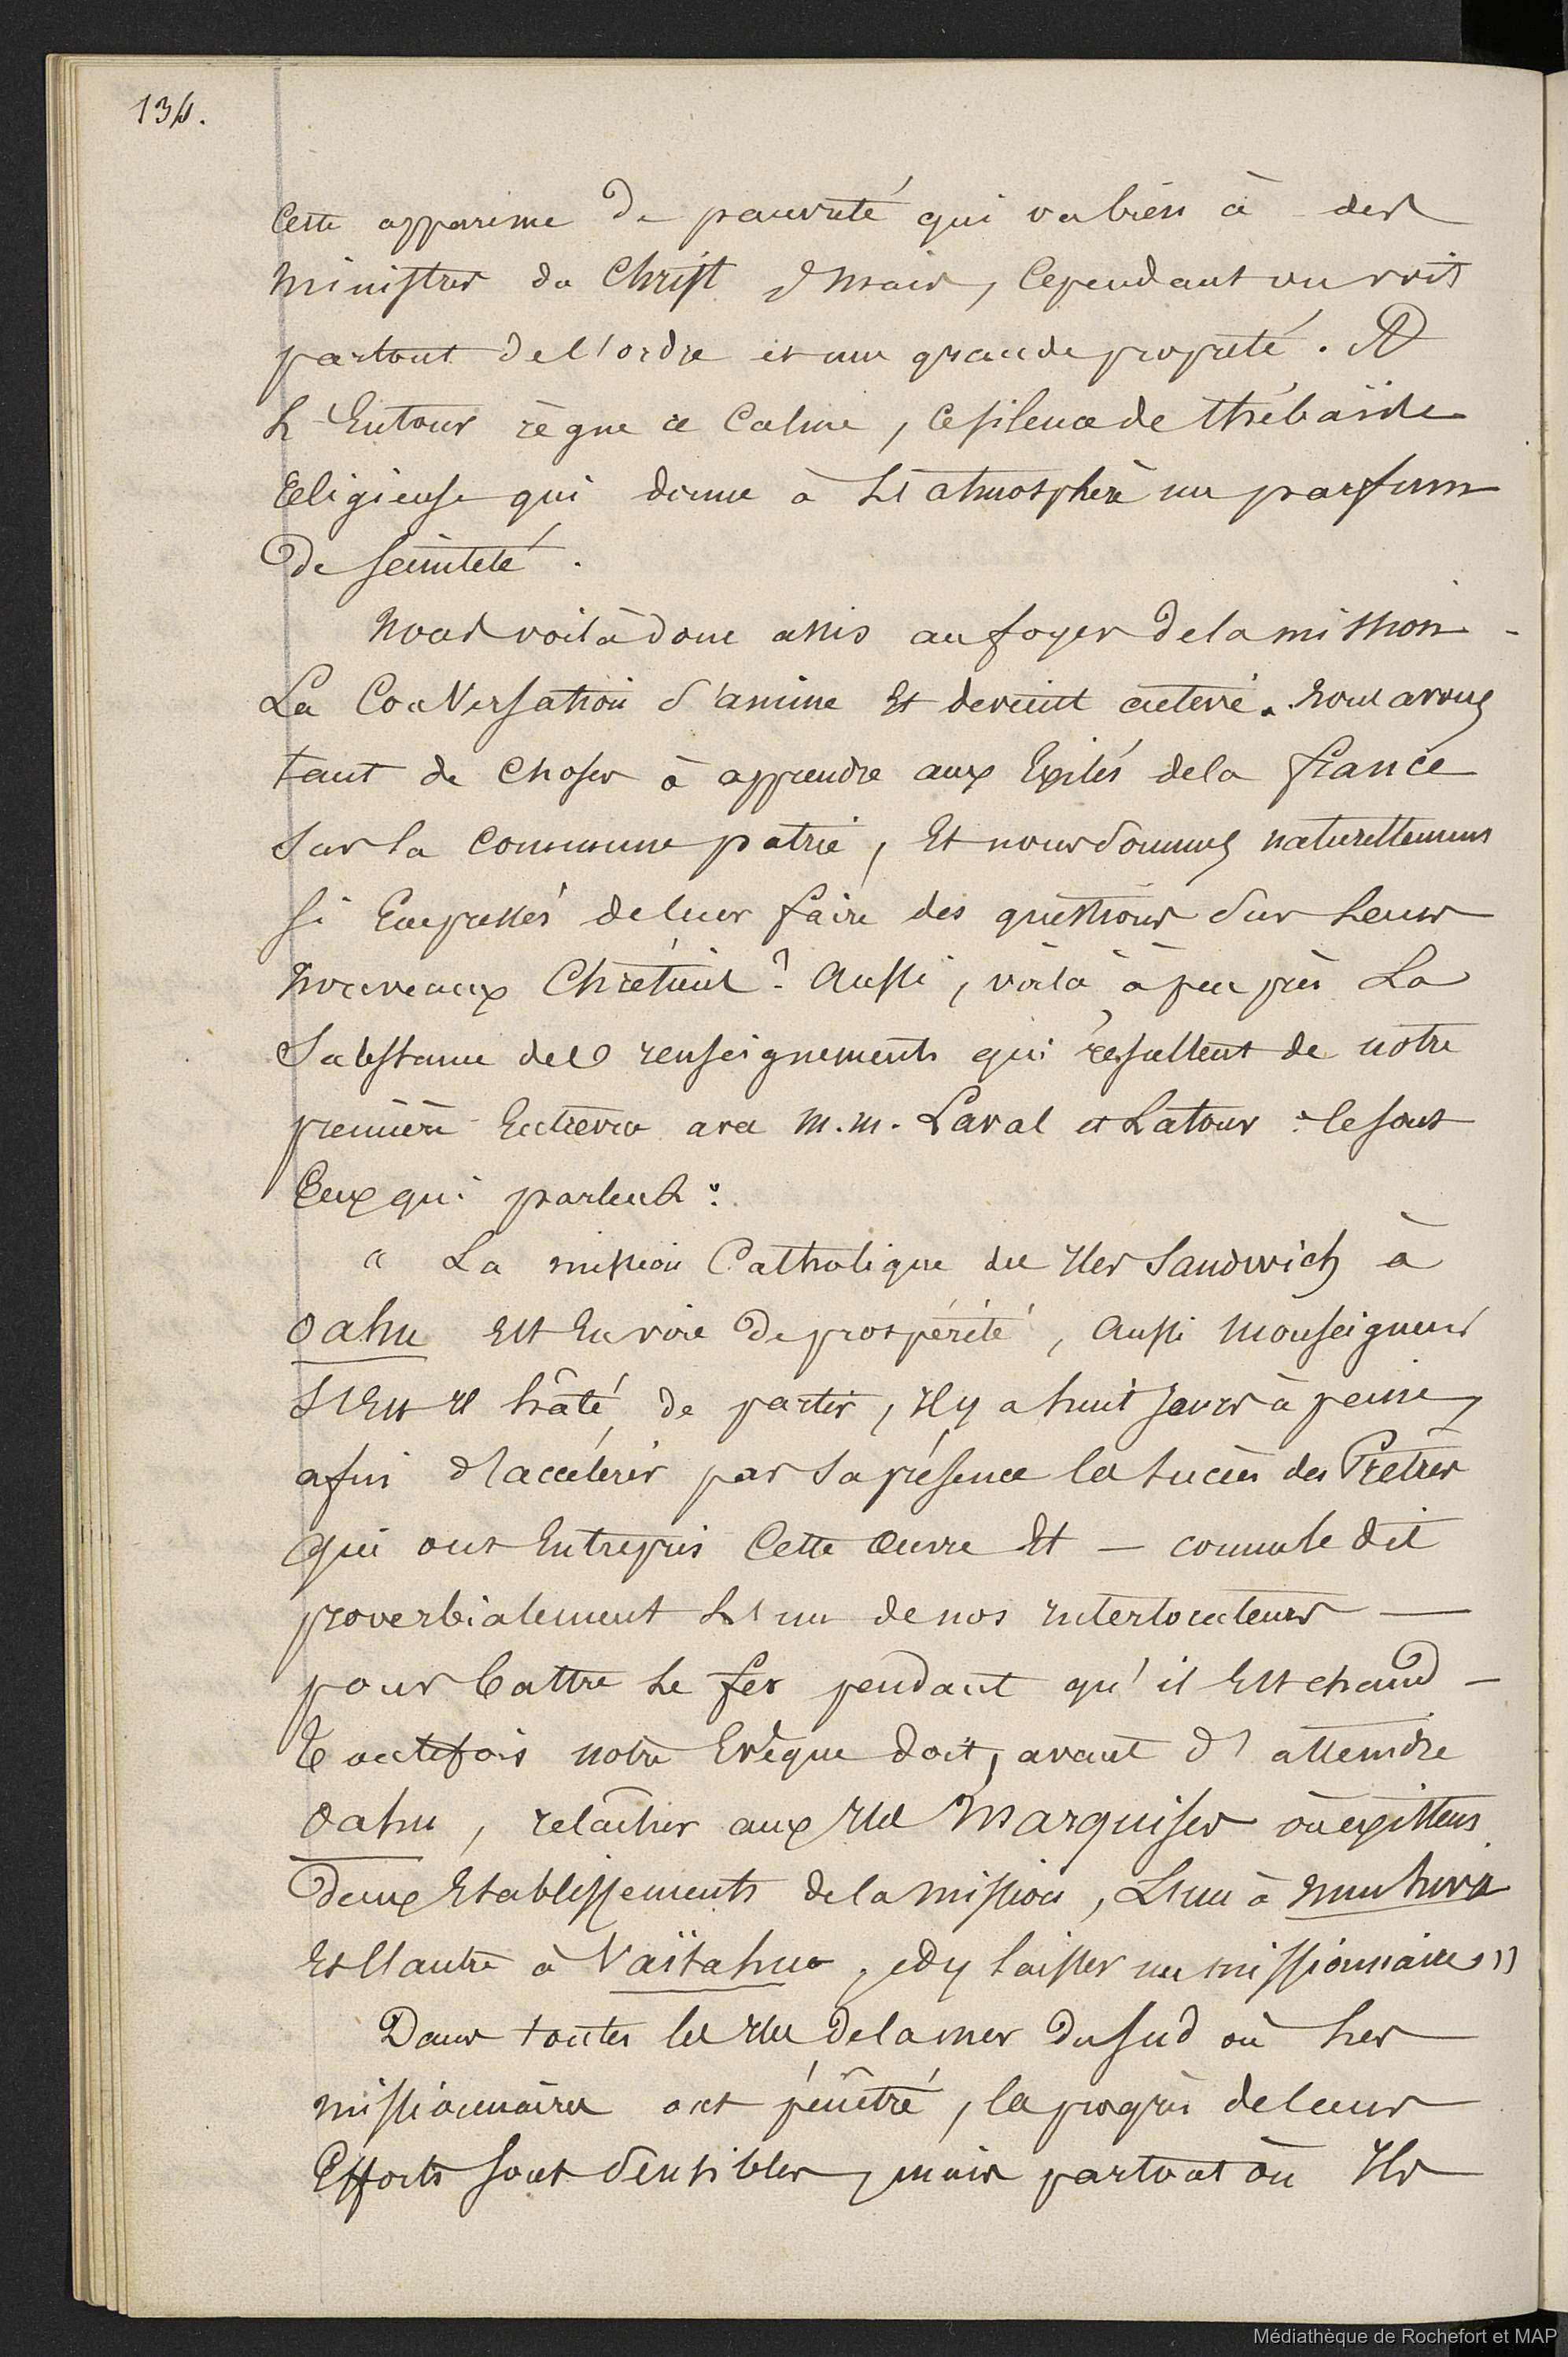 134.
Cette apparence de pauvreté qui va bien à des
ministres du Christ ; mais, Cependant on voit
partout de l'ordre et une grande propreté. A
L'Entour règne ce Calme, Ce silence de thébaïde
Religieuse qui donne à L'atmosphère un parfum
De sainteté.
Nous voilà donc assis au foyer de la mission -
La Conversation s'anime Et devient active. nous avons
tant de choses à apprendre aux Exilés de la france
Sur la Commune patrie, Et nous sommes naturellement
si Empressés de leur faire des questions sur Leurs
Nouveaux Chrétiens ! Aussi, voilà à peu près La
Substance des renseignements qui résultent de notre
première Entrevue avec M.M. Laval et Latour : Ce sont
Eux qui parlent :
« La mission Catholique des Iles Sandwich à
Oahu Est En voie De prospérité, Aussi Monseigneur
S'Est il hâté de partir, Il y a huit Jours à peine,
afin d'accélérer par Sa présence les succès des Prêtres
Qui ont Entrepris Cette Œuvre Et — comme le dit
proverbialement L'un de nos Interlocuteurs —
pour battre Le fer pendant qu'il Est chaud -
Toutefois notre Evêque doit, avant d'atteindre
Oahu, relâcher aux Iles Marquises où existent
Deux Etablissements de la Mission, L'un à Nuuhiva
Et l'autre à Vaïtahu, Et y laisser un missionnaire, »
Dans toutes les Iles de la mer Du Sud où Les
missionnaires ont pénétré, les progrès de leurs
Efforts sont Sensibles, mais partout où Ils
Médiathèque de Rochefort et MAP